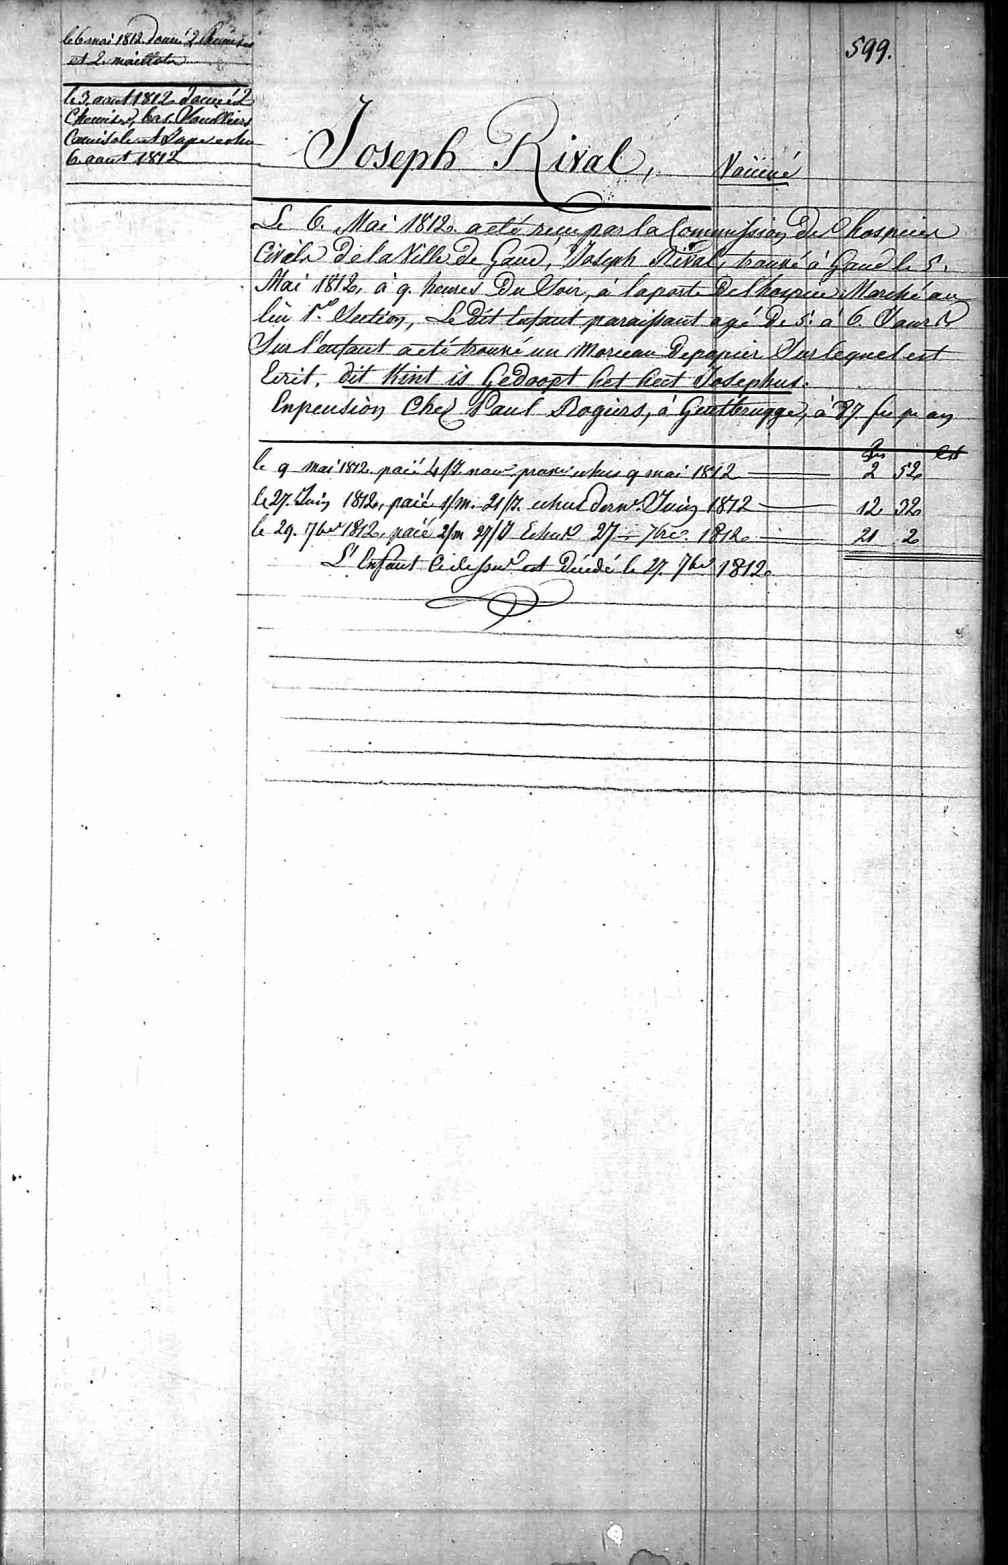 599.
le 6 mai 1812 donné 2 Chemises
et 2 maillots
le 3 aout 1812 donné 2
Chemises, bas, Souliers
Camisole et Jupe echu
6 aout 1812
Joseph Rival, Vacciné
Le 6. Mai 1812. a eté recu par la Commission de Chospices
Civils de la Ville de Gand, Joseph Rival, trouvé à Gand le 5.
Mai 1812, à 9. heures Du Soir, à la porte De l'hospice Marché au
lin 1re Section, Le Dit Enfant paraissant agé De 5. à 6. Jours
Sur l'enfant a eté trouvé un Morceau De papier Sur lequel est
Ecrit, dit Kint is Gedoopt het heet Josephus.
En pension Chez Paul Rogiers, à Gentbrugge, à 87 fr pr an
frs Cts
le 9 mai 1812. paié 4/J. echus 9 mai 1812 2 52
le 27. Juin 1812, paié 1/m. 21/J. echus dernr. Juin 1812 12 32
le 29. 7bre 1812, paié 2/m 27/J Echus 27 7bre. 1812 21 2
L'Enfant Ci dessus est Décédé le 27. 7bre 1812.